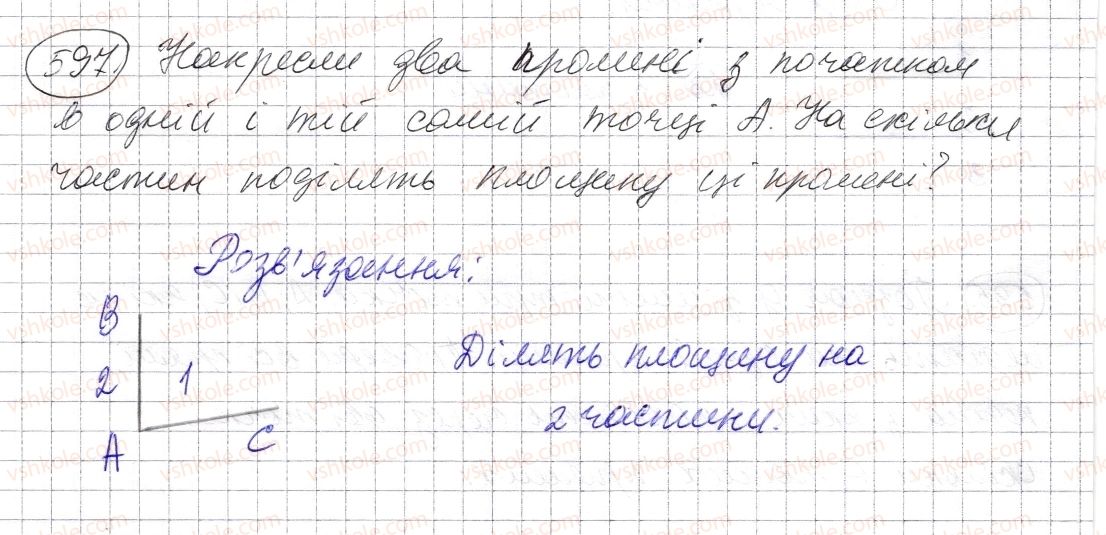 597. Накресли два промені з початком
в одній і тій самій точці А. На скільки
частин поділять площину ці промені?
Розв'язання:
В
2 1
Ділять площину на
2 частини.
А С